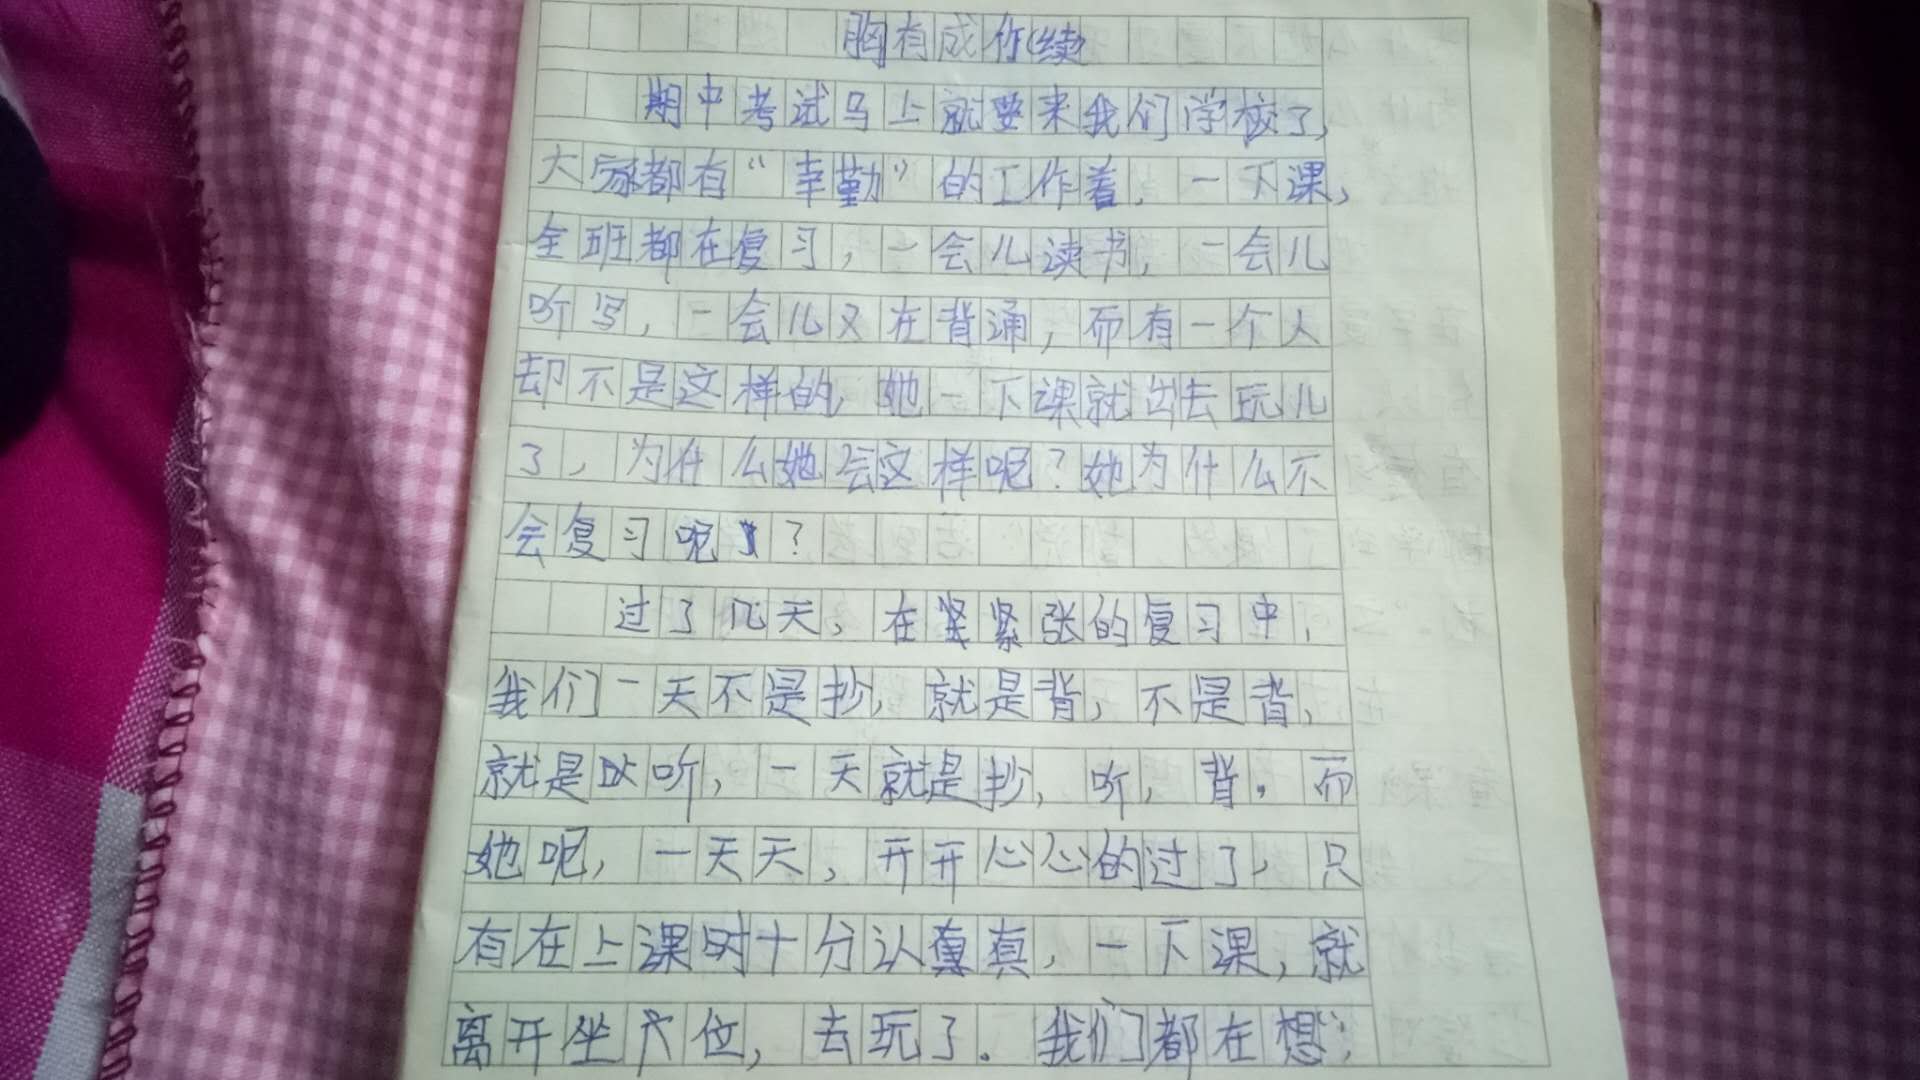 胸有成竹(续)
期中考试马上就要来我们学校了,
大家都有“幸勤”的工作着,一下课,
全班都在复习,一会儿读书,一会儿
听写,一会儿又在背诵,而有一个人
却不是这样的,她一下课就出去玩儿
了,为什么她会这样呢?她为什么不
会复习呢?
过了几天,在紧紧张的复习中,
我们一天不是抄,就是背,不是背,
就是听,一天就是抄,听,背。而
她呢,一天天,开开心心的过了,只
有在上课时十分认真真,一下课,就
离开坐位,去玩了。我们都在想: